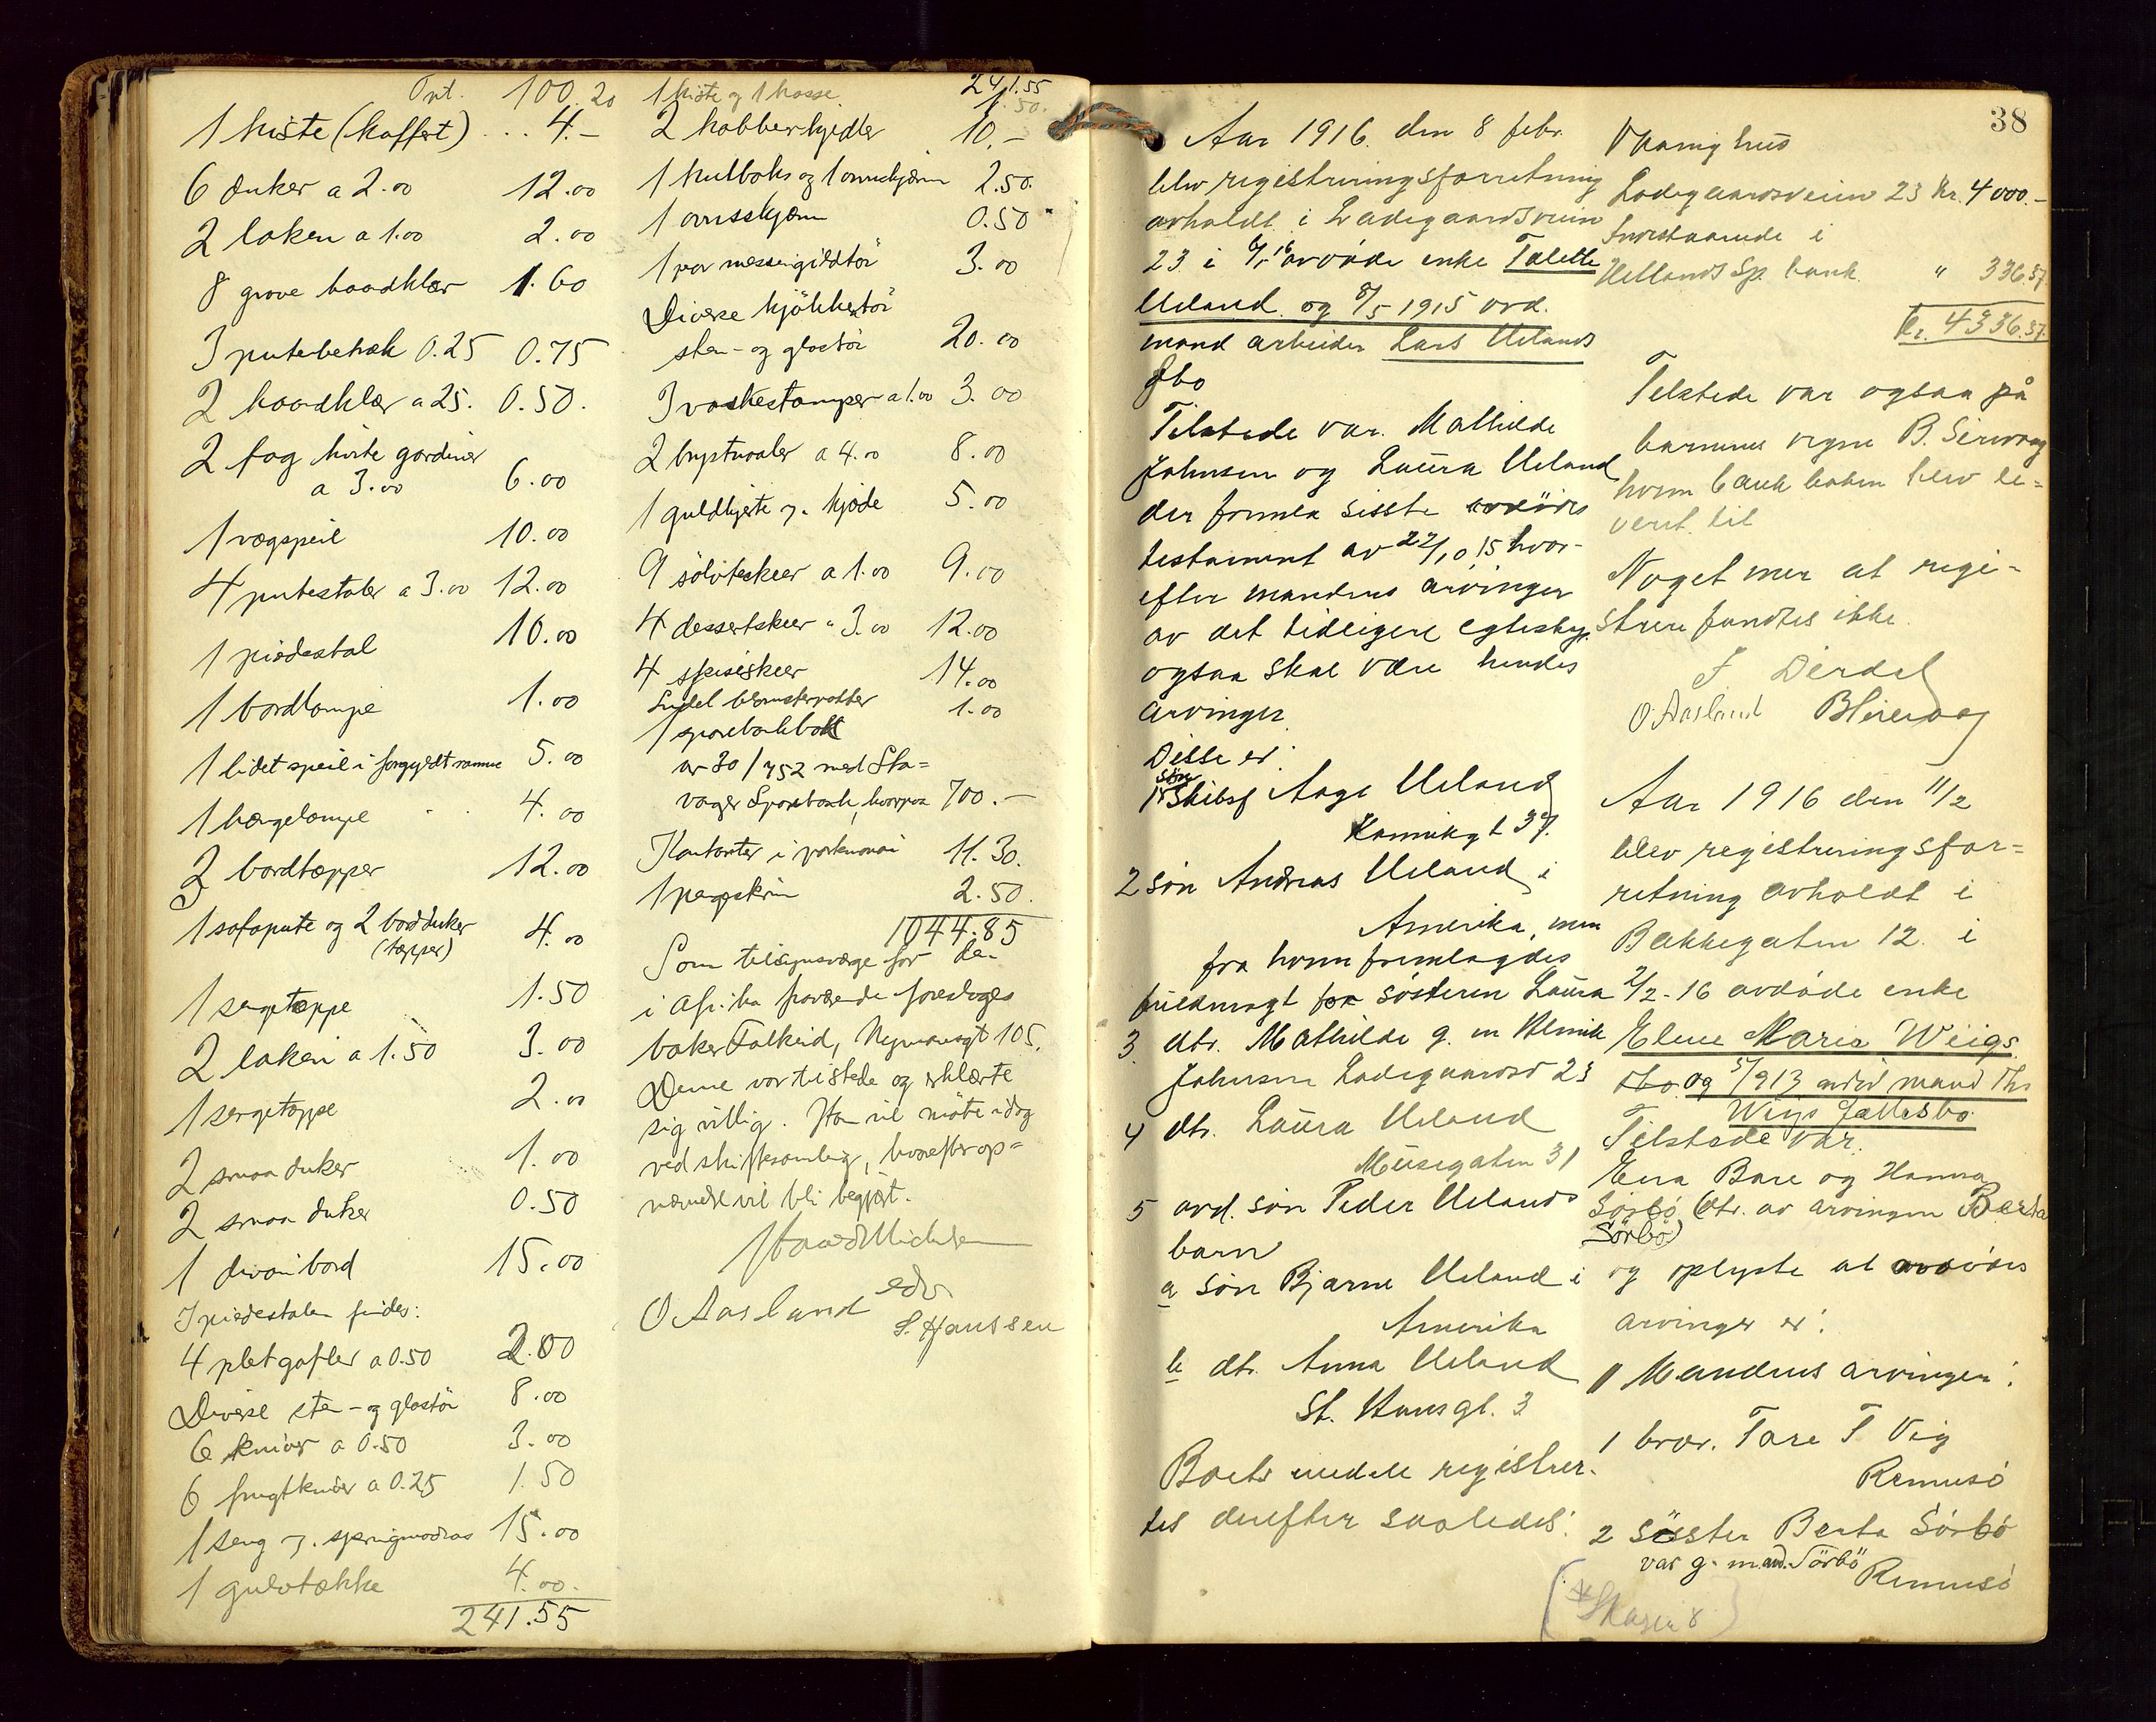 Trt. 100.20
1 kiste (koffert) ... 4.-
6 duker a 2.00 12.00
2 laken a 1.00 2.00
8 grove haandklær 1.60
3 putebetræk 0.25 0.75
2 haandklær a 25. 0.50.
2 fag hvite gardiner
a 3.00 6.00
1 vægspeil 10.00
4 putestoler a 3.00 12.00
1 piedestal 10.00
1 bordlampe 1.00
1 lidet speil i forgyldt ramme 5.00
1 hængelampe 4.00
3 bordtæpper 12.00
1 sofapute og 2 bordduker
(tæpper) 4.00
1 sengetæppe 1.50
2 laken a 1.50 3.00
1 sengetæppe 2.00
2 smaa duker 1.00
2 smaa duker 0.50
1 divanbord 15.00
I piedestalen findes:
4 pletgafler a 0.50 2.00
Diverse sten- og glastøi 8.00
6 kniver a 0.50 3.00
6 frugtkniver a 0.25 1.50
1 seng m. springmadras 15.00
1 gulvtække 4.00.
241.55
241.55
1 kiste og 1 kasse 1.50.
2 kobberkjedler 10.-
1 kulboks og 1 ovnskjærm 2.50.
1 ovnsskjærm 0.50
1 par messingildtøi 3.00
Diverse kjøkkentøi
sten- og glastøi 20.00
3 vaskestamper a 1.00 3.00
2 brystnaaler a 4.00 8.00
1 guldkjæde 5.00
9 sølvteskeer a 1.00 9.00
4 dessertskeer a 3.00 12.00
4 spiseskeer 14.00
Endel blomsterpotter 1.00
1 sparebankbok
nr 30/752 med Sta=
vanger Sparebank, hvorpaa 700.-
Kontanter i portemonnai 11.30.
1 pengeskrin 2.50.
1044.85
Som tilsynsværge for den
i Afrika fraværende foresloges
baker Falkeid, Nymansgt 105.
Denne var tilstede og erklærte
sig villig. Han vil møte idag
ved skiftesamling, hvorefter op=
nævnelse vil bli begjært.
O Aasland
S. Hanssen
38
Aar 1916 den 8 febr.
blev registreringsforretning
avholdt i Ladegaardsveien
23 i 6/1 16 avdøde enke Talette
Ueland og 8/5 1915 avd.
mand arbeider Lars Uelands
fbo
Tilstede var. Mathilde
Johnsen og Laura Ueland
der fremla sisste avdødes
testament av 22/10 15 hvor-
efter mandens arvinger
av det tidligere egtesk.
ogsaa skal være hendes
arvinger
Disse er:
1 søn Skibsf Aage Ueland
Kannikgt 37.
2 søn Andreas Ueland i
Amerika, men
fra hvem fremlagdes
fuldmagt for søsteren Laura
3. dtr. Mathilde g. m Henrik
Johnsen Ladegaardsv 23
4 dtr. Laura Ueland
Musegaten 31
5 avd. søn Peder Uelands
barn
a søn Bjarne Ueland i
Amerika
b dtr. Anna Ueland
St. Hansgt. 3
Boets midele registrer-
tes derefter saaledes:
Vaanighus
Ladegaardsveien 23 Kr. 4000.-
Indestaaende i
Hetlands Sp. bank " 336.57.
Kr. 4336.57.
Tilstede var ogsaa på
barnenes vegne B. Sirevaag
hvem bankboken blev le=
vert til
Noget mer at regi=
strere fandtes ikke.
O. Aasland BSirevaag
Aar 1916 den 11/2
blev registreringsfor=
retning avholdt i
Bakkegaten 12. i
2/2-16 avdøde enke
Elene Marie Weigs
og 5/913 avdød mand Ths
Weigs fællesbo
Tilstede var.
Enra Bare og Hanna
Sørbø (dtr. av arvingen Berta
Sørbø)
og oplyste at avdødes
arvinger er:
1 Mandens arvinger:
1 bror. Tore T Vig
Rennesø
2 søsster Berta Sørbø
var g. m. avd. Sørbø Rennesø